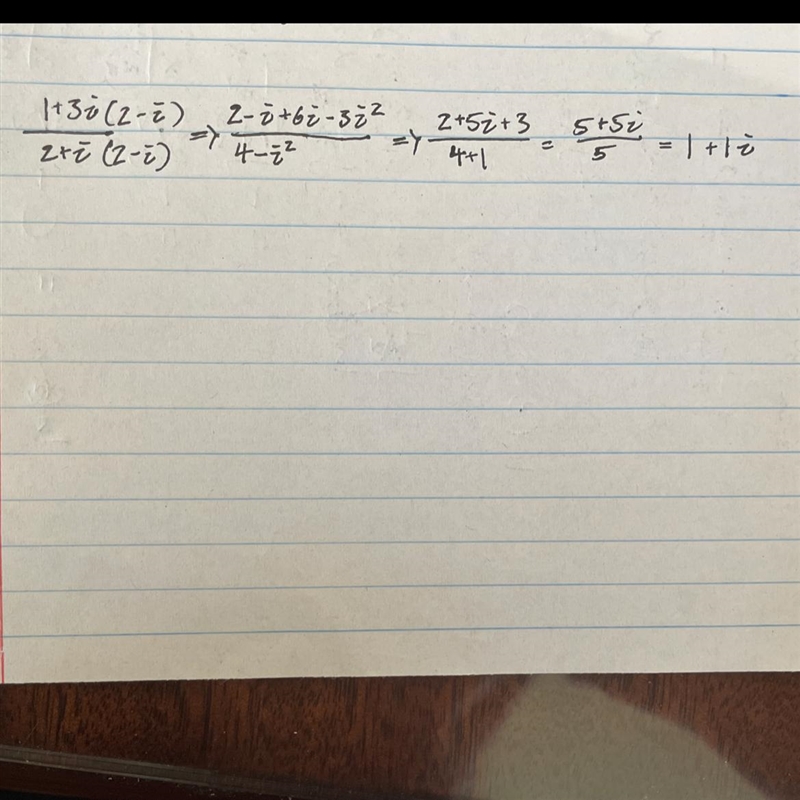 1+3i(2-i)/2+i(2-i) => 2-i+6i-3i²/4-i² => 2+5i+3/4+1 = 5+5i/5 = 1+1i